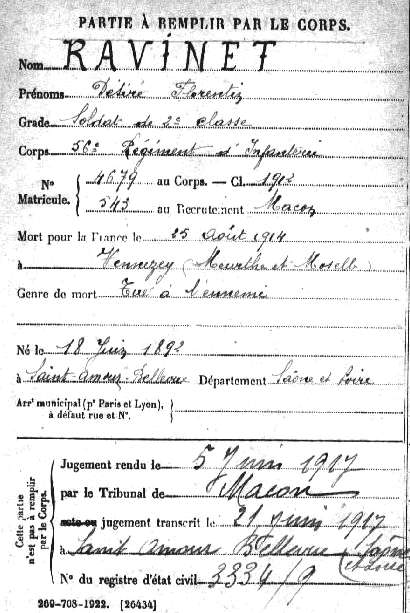 PARTIE À REMPLIR PAR LE CORPS.
Nom RAVINET
Prénoms Désiré Florentin
Grade Soldat de 2e classe
Corps 56e Régiment d'Infanterie
N° Matricule. { 4679 au Corps. — Cl. 1912
543 au Recrutement Macon
Mort pour la France le 25 août 1914
à Vennezey (Meurthe et Moselle)
Genre de mort Tué à l'ennemi
Né le 18 Juin 1892
à Saint Amour-Bellevue Département Saône et Loire
Arrt municipal (pr Paris et Lyon), à défaut rue et N°. {
Cette partie n'est pas à remplir par le Corps.
Jugement rendu le 5 Juin 1917
par le Tribunal de Macon
acte ou jugement transcrit le 21 Juin 1917
à Saint Amour Bellevue (Saône et Loire)
N° du registre d'état civil 3334/9
269-708-1922. [26434]